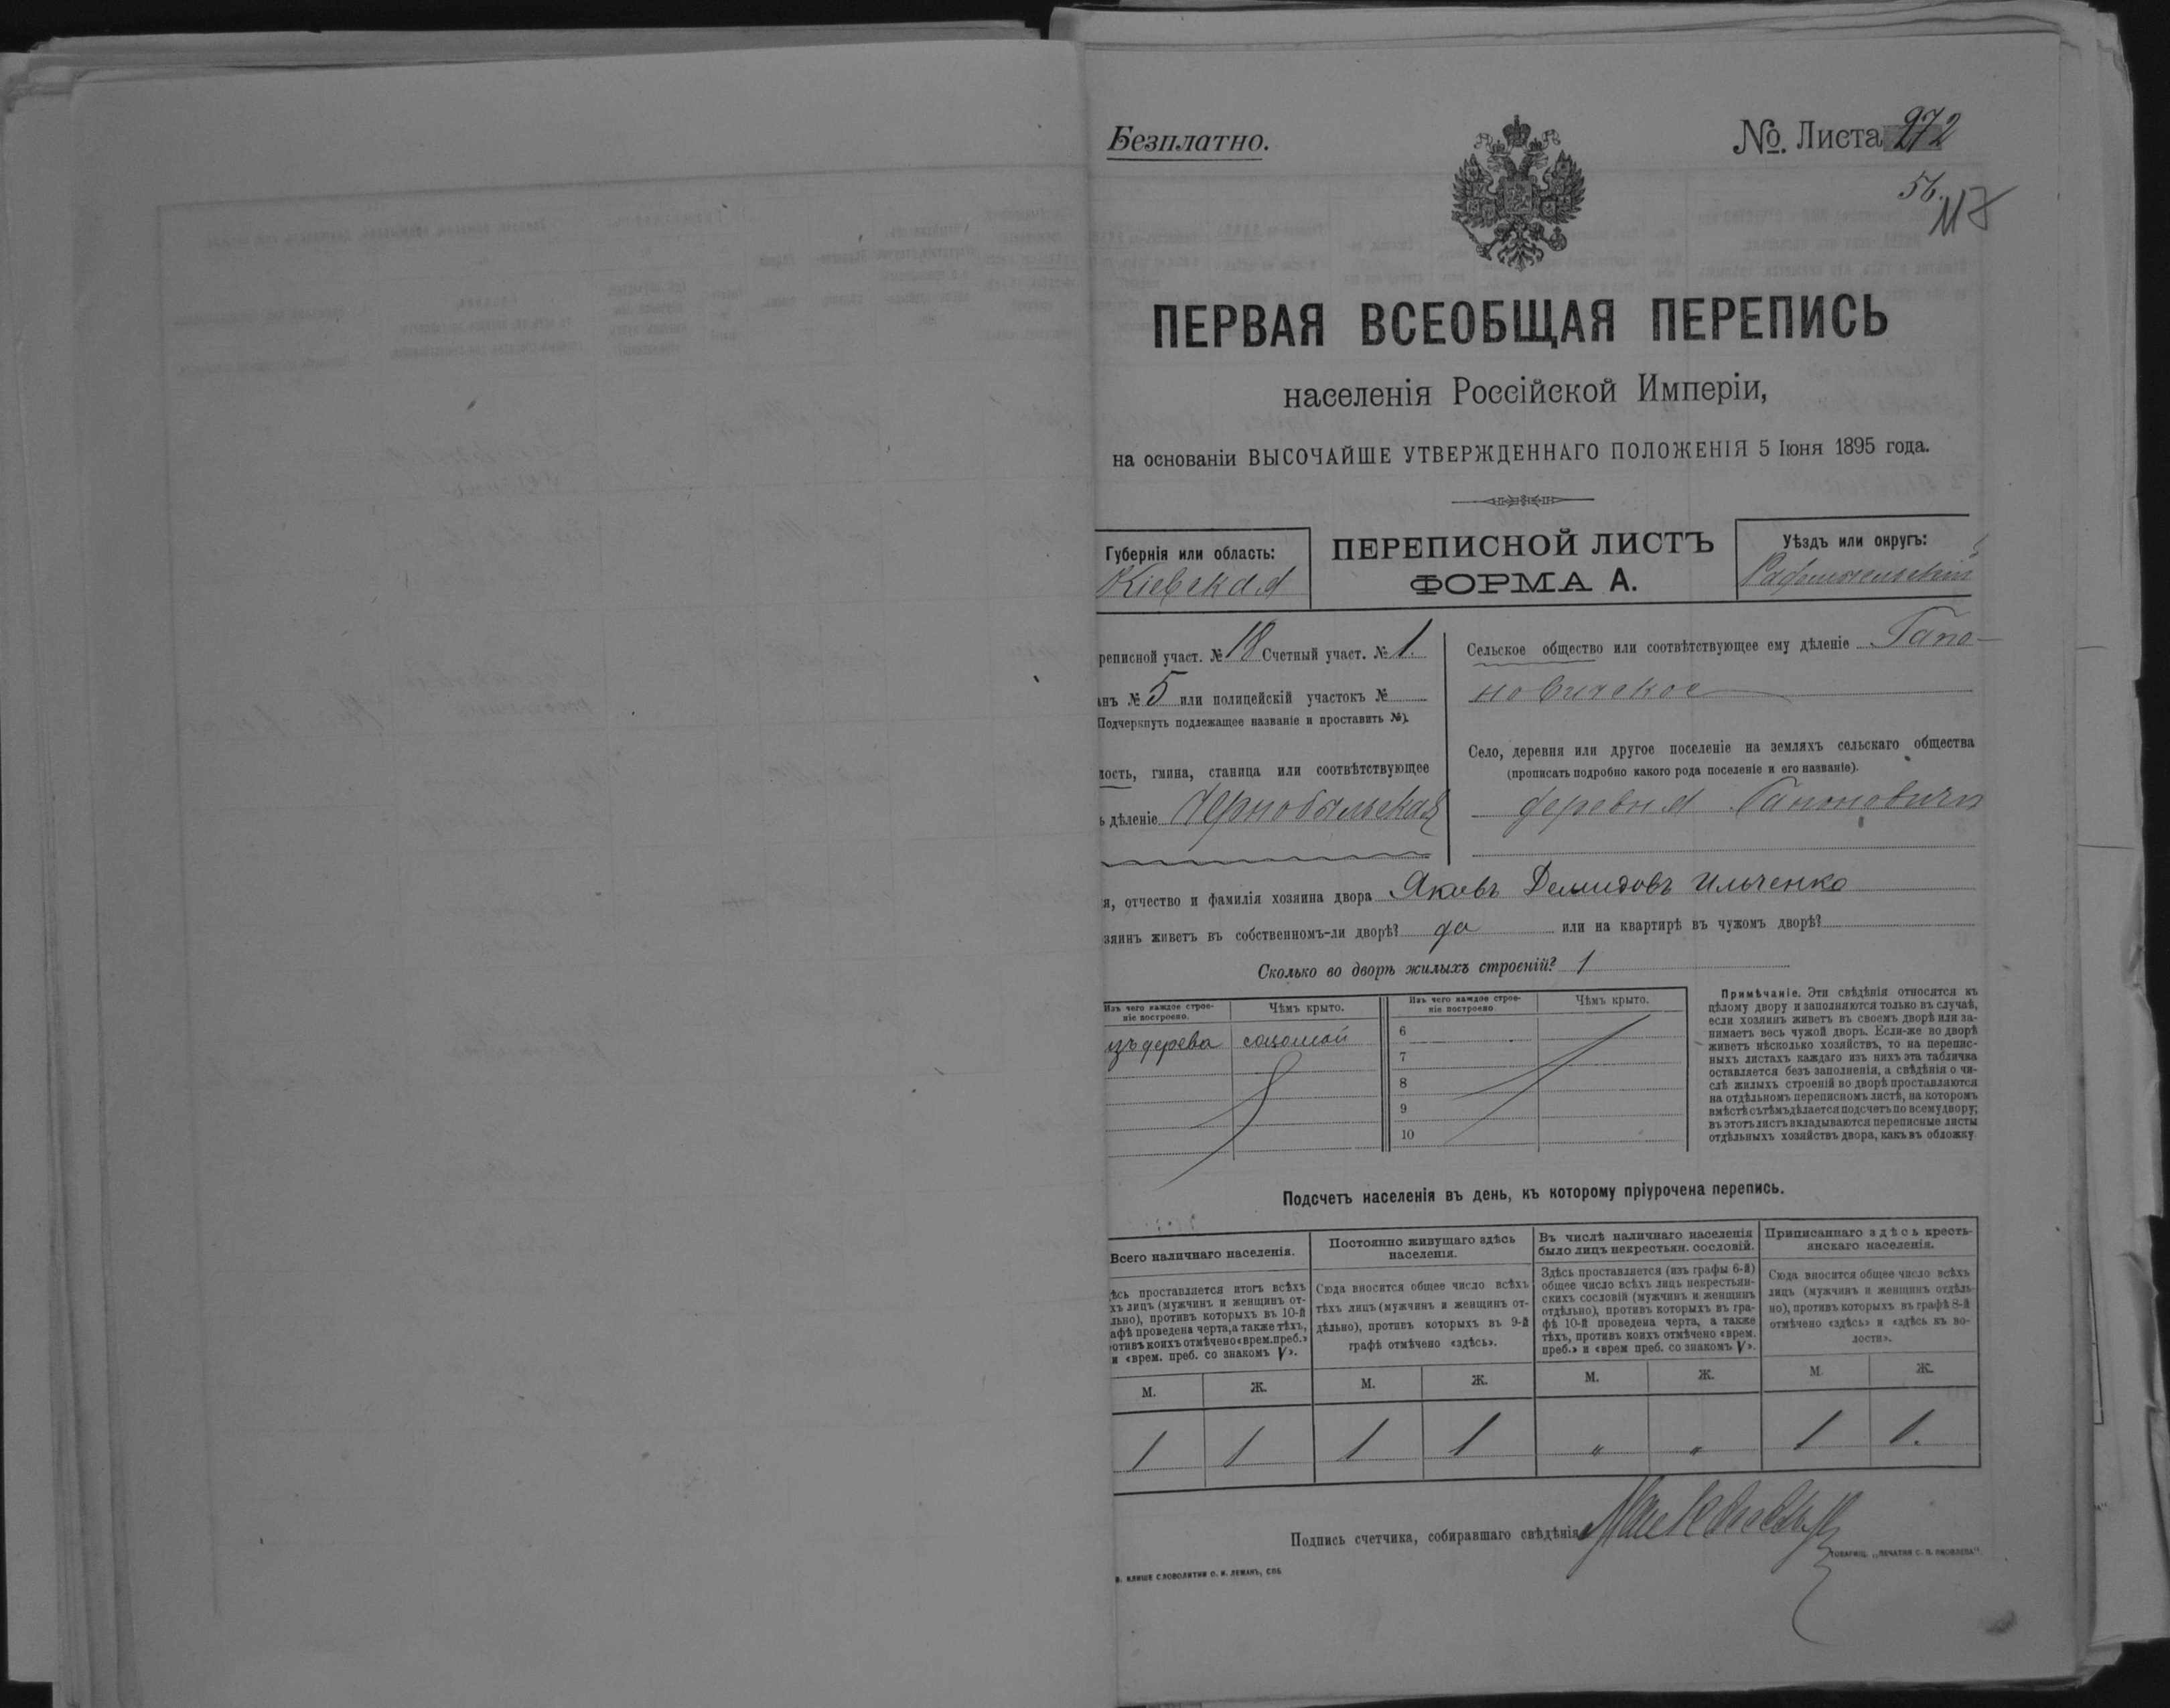 Безплатно.
№. Листа 272
56.
117
ПЕРВАЯ ВСЕОБЩАЯ ПЕРЕПИСЬ
населенія Россійской Имперіи,
на основаніи ВЫСОЧАЙШЕ УТВЕРЖДЕННАГО ПОЛОЖЕНІЯ 5 Іюня 1895 года.
Губернія или область:
Кіевская
ПЕРЕПИСНОЙ ЛИСТЪ
ФОРМА А.
Уѣздъ или округъ:
Радомысльскій
реписной участ. № 18 Счетный участ. № 1.
анъ № 5 или полицейскій участокъ №
Подчеркнуть подлежащее названіе и проставить №).
лость, гмина, станица или соотвѣтствующее
ъ дѣленіе Чернобыльская
Сельское общество или соотвѣтствующее ему дѣленіе Гапо-
новичское
Село, деревня или другое поселеніе на земляхъ сельскаго общества
(прописать подробно какого рода поселеніе и его названіе).
деревня Гапоновичи
я, отчество и фамилія хозяина двора Яковъ Демидовъ Ильченко
зяинъ живетъ въ собственномъ-ли дворѣ? да или на квартирѣ въ чужомъ дворѣ?
Сколько во дворѣ жилыхъ строеній? 1
Изъ чего каждое строе-
ніе построено.
Чѣмъ крыто.
Изъ чего каждое строе-
ніе построено
Чѣмъ крыто.
изъ дерева соломой
6
7
8
9
10
Примѣчаніе. Эти свѣдѣнія относятся къ
цѣлому двору и заполняются только въ случаѣ,
если хозяинъ живетъ въ своемъ дворѣ или за-
нимаетъ весь чужой дворъ. Если-же во дворѣ
живетъ нѣсколько хозяйствъ, то на перепис-
ныхъ листахъ каждаго изъ нихъ эта табличка
оставляется безъ заполненія, а свѣдѣнія о чи-
слѣ жилыхъ строеній во дворѣ проставляются
на отдѣльномъ переписномъ листѣ, на которомъ
вмѣстѣ съ тѣмъ дѣлается подсчетъ по всему двору;
въ этотъ листъ вкладываются переписные листы
отдѣльныхъ хозяйствъ двора, какъ въ обложку
Подсчетъ населенія въ день, къ которому пріурочена перепись.
Всего наличнаго населенія.
ѣсь проставляется итогъ всѣхъ
хъ лицъ (мужчинъ и женщинъ от-
льно), противъ которыхъ въ 10-й
афѣ проведена черта, а также тѣхъ,
отивъ коихъ отмѣчено «врем. преб.»
и «врем. преб. со знакомъ V».
Постоянно живущаго здѣсь
населенія.
Сюда вносится общее число всѣхъ
тѣхъ лицъ (мужчинъ и женщинъ от-
дѣльно), противъ которыхъ въ 9-й
графѣ отмѣчено «здѣсь».
Въ числѣ наличнаго населенія
было лицъ некрестьян. сословій.
Здѣсь проставляется (изъ графы 6-й)
общее число всѣхъ лицъ некрестьян-
скихъ сословій (мужчинъ и женщинъ
отдѣльно), противъ которыхъ въ гра-
фѣ 10-й проведена черта, а также
тѣхъ, противъ коихъ отмѣчено «врем.
преб.» и «врем преб. со знакомъ V».
Приписаннаго здѣсь кресть-
янскаго населенія.
Сюда вносится общее число всѣхъ
лицъ (мужчинъ и женщинъ отдѣль-
но), противъ которыхъ въ графѣ 8-й
отмѣчено «здѣсь» и «здѣсь къ во-
лости».
М. Ж. М. Ж. М. Ж. М. Ж.
1 1 1 1 " " 1 1.
Подпись счетчика, собиравшаго свѣдѣнія
ТОВАРИЩ. „ПЕЧАТНЯ С. П. ЯКОВЛЕВА".
И. КЛИШЕ СЛОВОЛИТНИ О. И. ЛЕМАНЪ, СПБ